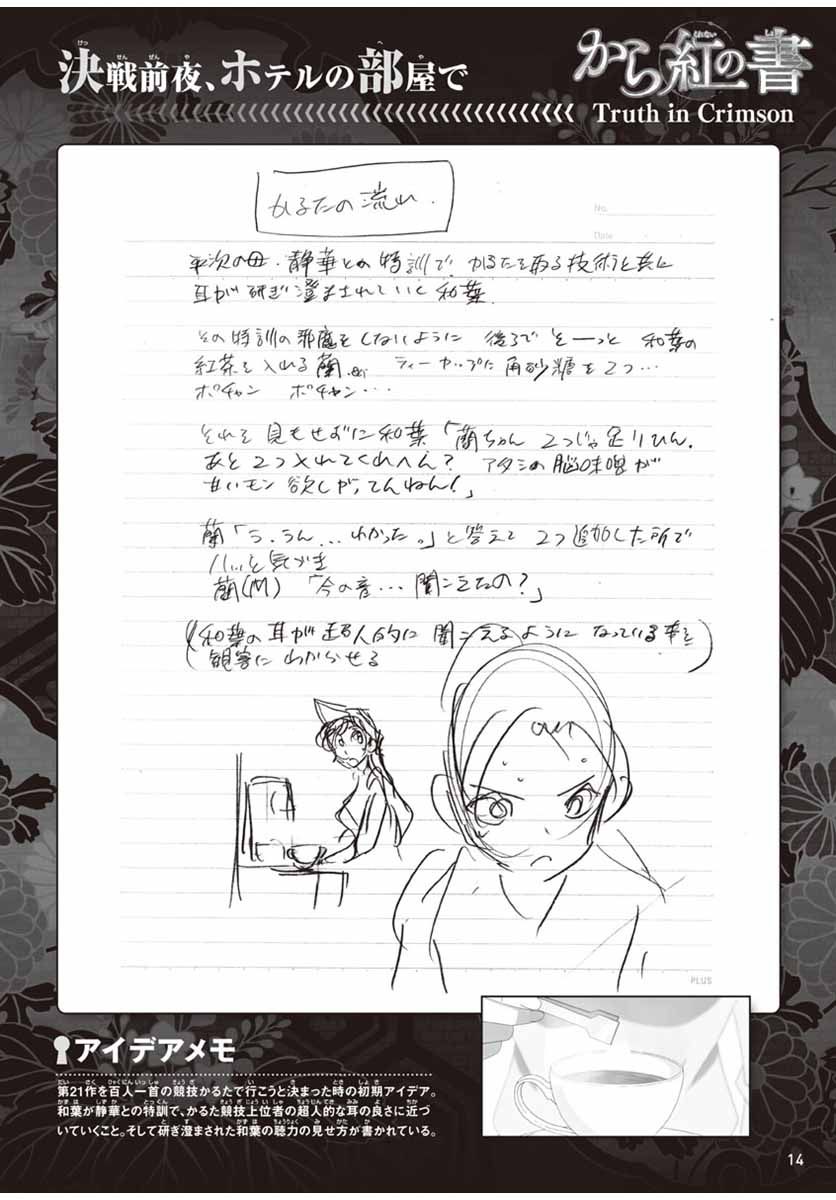 決戦前夜、ホテルの部屋で
から紅の書
Truth in Crimson
かるたの流れ.
No.
Date
平次の母・静華との特訓で かるたを取る技術と共に
耳が研ぎ澄まされていく和葉.
その特訓の邪魔をしないように 後ろで そーっと 和葉の
紅茶を入れる蘭.
ティーカップに角砂糖を2つ…
ポチャン ポチャン…
それを見もせずに和葉「蘭ちゃん 2つじゃ足りひん.
あと2つ入れてくれへん? アタシの脳味噌が
甘いモン欲しがってんねん!」
蘭「う、うん... わかった。」と答えて 2つ追加した所で
ハッと気づき
蘭(M)「今の音… 聞こえたの?」
(和葉の耳が超人的に聞こえるようになっている事を
観客にわからせる)
PLUS
アイデアメモ
第21作を百人一首の競技かるたで行こうと決まった時の初期アイデア。
和葉が静華との特訓で、かるた競技上位者の超人的な耳の良さに近づ
いていくこと。そして研ぎ澄まされた和葉の聴力の見せ方が書かれている。
14